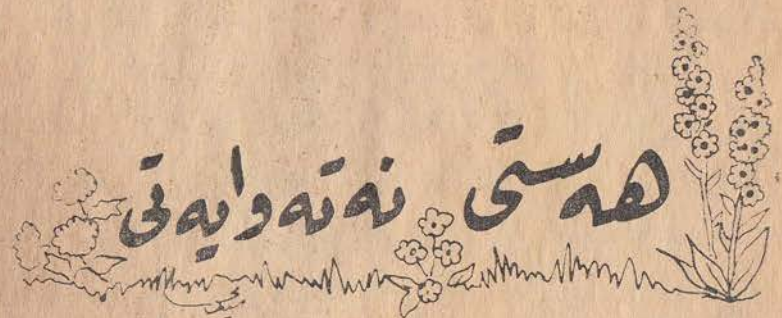 هەستی نەتەوایەتی